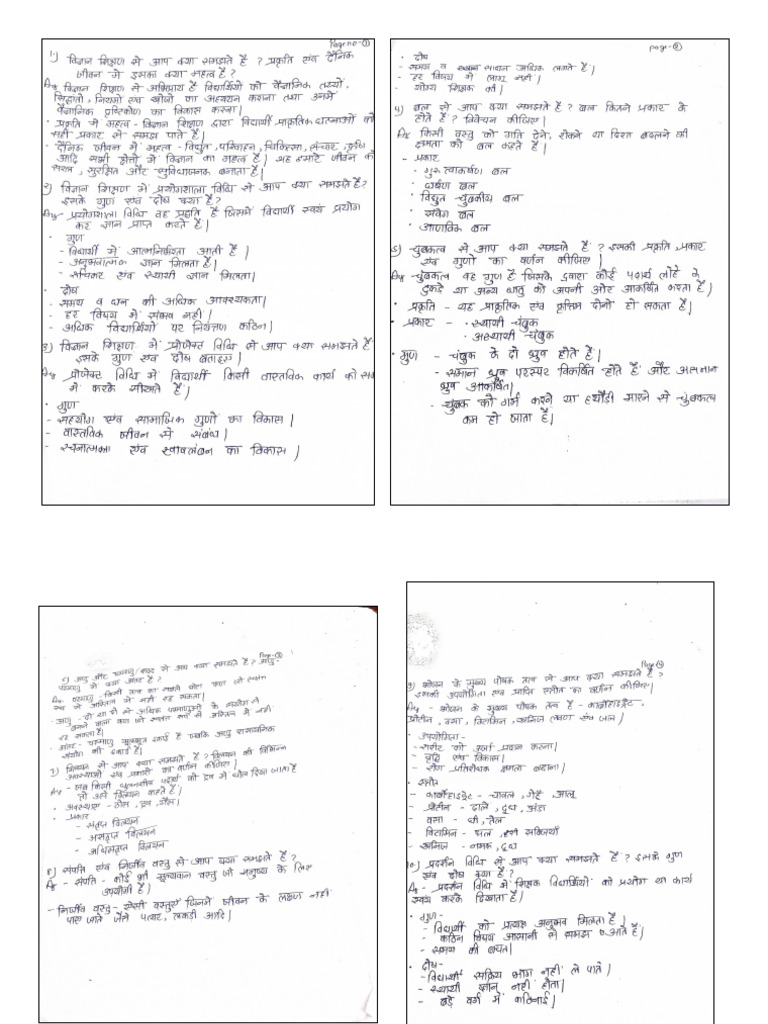 Page no - ①
1) विज्ञान शिक्षण से आप क्या समझते है ? प्रकृति एंव दैनिक
जीवन मे इसका क्या महत्व है ?
Ans विज्ञान शिक्षण से अभिप्राय है विद्यार्थियों को वैज्ञानिक तथ्यो,
सिद्धांतो, नियमों एंव खोजों का अध्ययन कराना तथा उनमें
वैज्ञानिक दृष्टिकोण का विकास करना।
• प्रकृति में महत्व - विज्ञान शिक्षण द्वारा विद्यार्थी प्राकृतिक घटनाओं को
सही प्रकार से समझ पाते है।
• दैनिक जीवन में महत्व - विद्युत, परिवहन, चिकित्सा, संचार, कृषि
आदि सभी क्षेत्रों में विज्ञान का महत्व है। यह हमारे जीवन को
सरल, सुरक्षित और सुविधाजनक बनाता है।
2) विज्ञान शिक्षण में प्रयोगशाला विधि से आप क्या समझते है?
इसके गुण एंव दोष क्या है?
Ans - प्रयोगशाला विधि वह पद्धति है जिसमें विद्यार्थी स्वयं प्रयोग
कर ज्ञान प्राप्त करते है।
• गुण
- विद्यार्थी में आत्मनिर्भरता आती है।
- अनुभवात्मक ज्ञान मिलता है।
- रुचिकर एंव स्थायी ज्ञान मिलता।
• दोष
- समय व धन की अधिक आवश्यकता।
- हर विषय में संभव नही।
- अधिक विद्यार्थियों पर नियंत्रण कठिन।
3) विज्ञान शिक्षण में प्रोजेक्ट विधि से आप क्या समझते है
इसके गुण एंव दोष बताइए।
Ans प्रोजेक्ट विधि में विद्यार्थी किसी वास्तविक कार्य को समूह
में करके सीखते है।
• गुण
- सहयोग एंव सामाजिक गुणों का विकास।
- वास्तविक जीवन से संबंध।
- रचनात्मकता एंव स्वावलंबन का विकास।
page-②
• दोष
- समय व साधन अधिक लगते है।
- हर विषय में लागू नही।
- योग्य शिक्षक की।
4) बल से आप क्या समझते है? बल कितने प्रकार के
होते है? विवेचन कीजिए।
Ans किसी वस्तु को गति देने, रोकने या दिशा बदलने की
क्षमता को बल कहते है।
- प्रकार
• गुरुत्वाकर्षण बल
• घर्षण बल
• विद्युत चुंबकीय बल
• संवेग बल
• आणविक बल
5) चुंबकत्व से आप क्या समझते है? इसकी प्रकृति, प्रकार
एंव गुणों का वर्णन कीजिए।
Ans - चुंबकत्व वह गुण है जिसके द्वारा कोई पदार्थ लोहे के
टुकड़े या अन्य धातु को अपनी ओर आकर्षित करता है।
• प्रकृति - यह प्राकृतिक एंव कृत्रिम दोनों हो सकता है।
• प्रकार - • स्थायी चुंबक
• अस्थायी चुंबक
• गुण - चंबुक के दो ध्रुव होते है।
- समान ध्रुव परस्पर विकर्षित होते है और असमान
ध्रुव आकर्षित।
- चुंबक को गर्म करने या हथौड़ी मारने से चुंबकत्व
कम हो जाता है।
Page-③
6) अणु और परमाणु से आप क्या समझते है? अणु-
परमाणु में क्या अंतर है?
Ans परमाणु - किसी तत्व का सबसे छोटा कण जो स्वतंत्र
रूप से अस्तित्व में नही रह सकता।
• अणु - दो या दो से अधिक परमाणुओं के संयोग से
बनने वाला कण जो स्वतंत्र रूप से अस्तित्व में
रह सकता है।
• अंतर - परमाणु मूलभूत इकाई है जबकि अणु रासायनिक
संयोग की इकाई है।
7) विलयन से आप क्या समझते है? विलयन की विभिन्न
अवस्थाओं एंव प्रकारों का वर्णन कीजिए।
Ans - जब किसी घुलनशील पदार्थ को द्रव में घोल दिया जाता है
तो उसे विलयन कहते है।
• अवस्थाएं - ठोस, द्रव, गैस।
• प्रकार
- संतृप्त विलयन
- असंतृप्त विलयन
- अधिसंतृप्त विलयन
8) संपत्ति एंव निर्जीव वस्तु से आप क्या समझते है?
Ans - संपत्ति - कोई भी मूल्यवान वस्तु जो मनुष्य के लिए
उपयोगी है।
- निर्जीव वस्तु - ऐसी वस्तुएं जिनमें जीवन के लक्षण नही
पाए जाते जैसे पत्थर, लकड़ी आदि।
Page-④
9) भोजन के मुख्य पोषक तत्व से आप क्या समझते है?
इसकी उपयोगिता एंव प्राप्ति स्त्रोत का वर्णन कीजिए।
Ans - भोजन के मुख्य पोषक तत्व है - कार्बोहाइड्रेट,
प्रोटीन, वसा, विटामिन, खनिज लवण एंव जल।
• उपयोगिता -
- शरीर को ऊर्जा प्रदान करना।
- वृद्धि एंव विकास।
- रोग प्रतिरोधक क्षमता बढ़ाना।
• स्त्रोत
- कार्बोहाइड्रेट - चावल, गेहूँ, आलू
- प्रोटीन - दाले, दूध, अंडा
- वसा - घी, तेल
- विटामिन - फल, हरी सब्जियाँ
- खनिज - नमक, दूध
10) प्रदर्शन विधि से आप क्या समझते है? इसके गुण
एंव दोष क्या है?
Ans - प्रदर्शन विधि में शिक्षक विद्यार्थियों को प्रयोग या कार्य
स्वयं करके दिखाता है।
• गुण -
- विद्यार्थी को प्रत्यक्ष अनुभव मिलता है।
- कठिन विषय आसानी से समझ आते है।
- समय की बचत।
• दोष -
- विद्यार्थी सक्रिय भाग नही ले पाते।
- स्थायी ज्ञान नही होता।
- बड़े वर्ग में कठिनाई।